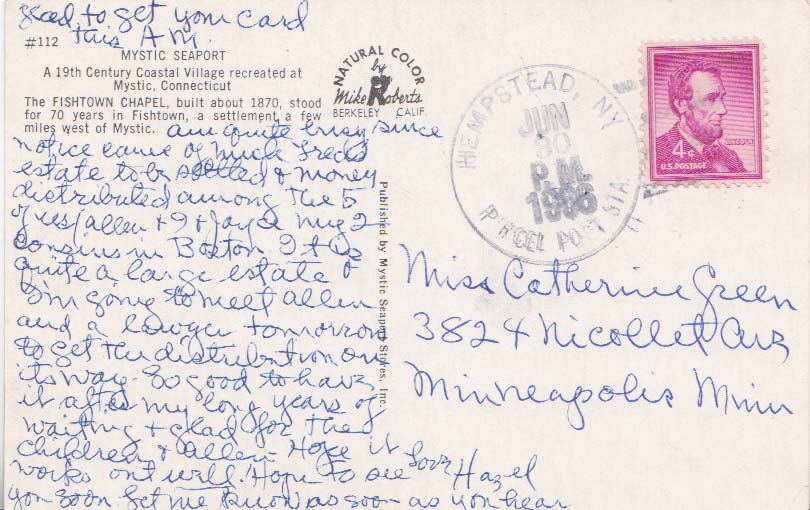 glad to get your card
this A.M.
#112
MYSTIC SEAPORT
A 19th Century Coastal Village recreated at
Mystic, Connecticut
The FISHTOWN CHAPEL, built about 1870, stood
for 70 years in Fishtown, a settlement a few
miles west of Mystic.
am quite busy since
notice came of Uncle Fred's
estate to be settled & money
distributed among the 5
of us/Allen + I + Joyce
2
cousins in Boston. It is
quite a large estate &
I'm going to meet Allen
and a lawyer tomorrow
to get the distribution on
its way. So good to have
it after my long years of
waiting + glad for the
children & Allen. Hope it
works out well. Hope to see
you soon. Let me know as soon as you hear
Love Hazel
NATURAL COLOR
by
Mike Roberts
BERKELEY CALIF.
Published by Mystic Seaport Stores, Inc.
HEMPSTEAD, NY
JUN
30
P.M.
1966
PARCEL POST STA.
LINCOLN
4¢
U.S. POSTAGE
Miss Catherine Green
3824 Nicollet Ave
Minneapolis Minn